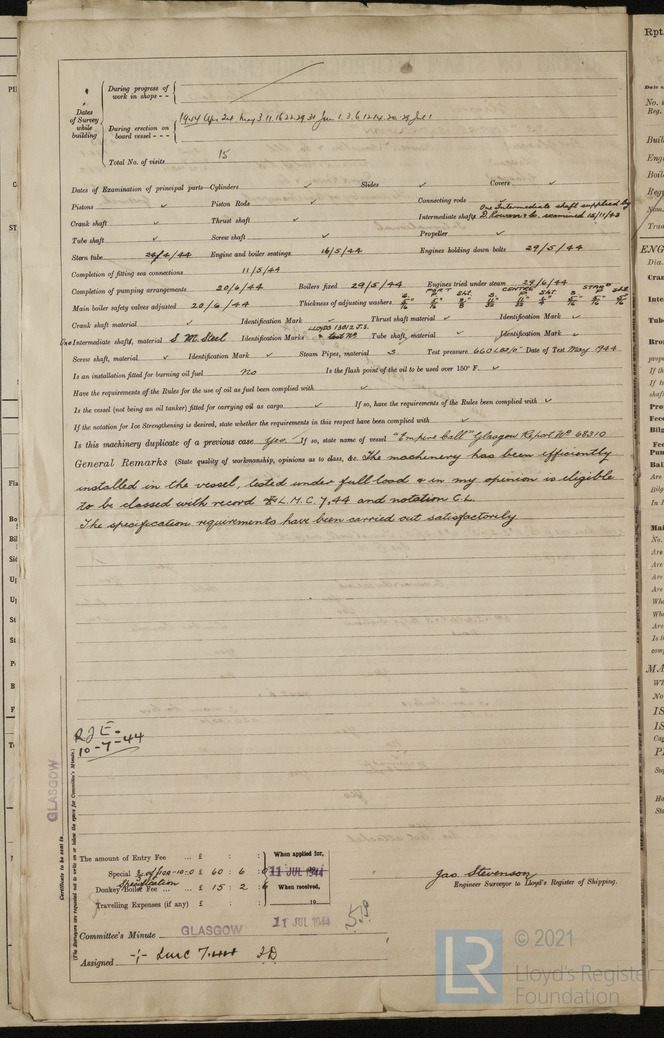 Dates of Survey while building
During progress of work in shops - -
During erection on board vessel - - -
1944 Apr. 24 May 3. 11. 16. 22. 29. 31 June 1. 3. 6. 12. 14. 20. 29 Jul 1
Total No. of visits 15
Dates of Examination of principal parts—Cylinders ✓ Slides ✓ Covers ✓
Pistons ✓ Piston Rods ✓ Connecting rods
Crank shaft ✓ Thrust shaft ✓ Intermediate shafts One Intermediate shaft supplied by D. Rowan & Co. examined 15/11/43
Tube shaft ✓ Screw shaft ✓ Propeller ✓
Stern tube 24/4/44 Engine and boiler seatings 16/5/44 Engines holding down bolts 29/5/44
Completion of fitting sea connections 11/5/44
Completion of pumping arrangements 20/6/44 Boilers fixed 29/5/44 Engines tried under steam 29/6/44
Main boiler safety valves adjusted 20/6/44 Thickness of adjusting washers
Crank shaft material ✓ Identification Mark ✓ Thrust shaft material ✓ Identification Mark ✓
One Intermediate shafts, material S M Steel Identification Marks LLOYDS 13012 J.S. & test No. Tube shaft, material ✓ Identification Mark ✓
Screw shaft, material ✓ Identification Mark ✓ Steam Pipes, material S Test pressure 660 LBS/□" Date of Test May 1944
Is an installation fitted for burning oil fuel No Is the flash point of the oil to be used over 150° F. ✓
Have the requirements of the Rules for the use of oil as fuel been complied with ✓
Is the vessel (not being an oil tanker) fitted for carrying oil as cargo ✓ If so, have the requirements of the Rules been complied with ✓
If the notation for Ice Strengthening is desired, state whether the requirements in this respect have been complied with ✓
Is this machinery duplicate of a previous case Yes If so, state name of vessel "Empire Call" Glasgow Report No 68310
General Remarks (State quality of workmanship, opinions as to class, &c. The machinery has been efficiently
installed in the vessel, tested under full load & in my opinion is eligible
to be classed with record ✠ L.M.C. 7.44 and notation C.L.
The specification requirements have been carried out satisfactorily
10-7-44
GLASGOW
Certificate to be sent to
(The Surveyors are requested not to write on or below the space for Committee's Minute.)
The amount of Entry Fee ... £ : :
Special £ 60 : 6 : 0
Specification
Donkey Boiler Fee ... ... £ 15 : 2 : 6
Travelling Expenses (if any) £ : :
When applied for,
11 JUL 1944
When received,
19
Jas. Stevenson
Engineer Surveyor to Lloyd's Register of Shipping.
Committee's Minute GLASGOW 11 JUL 1944
Assigned
LR
© 2021
Lloyd's Register
Foundation
Rpt.